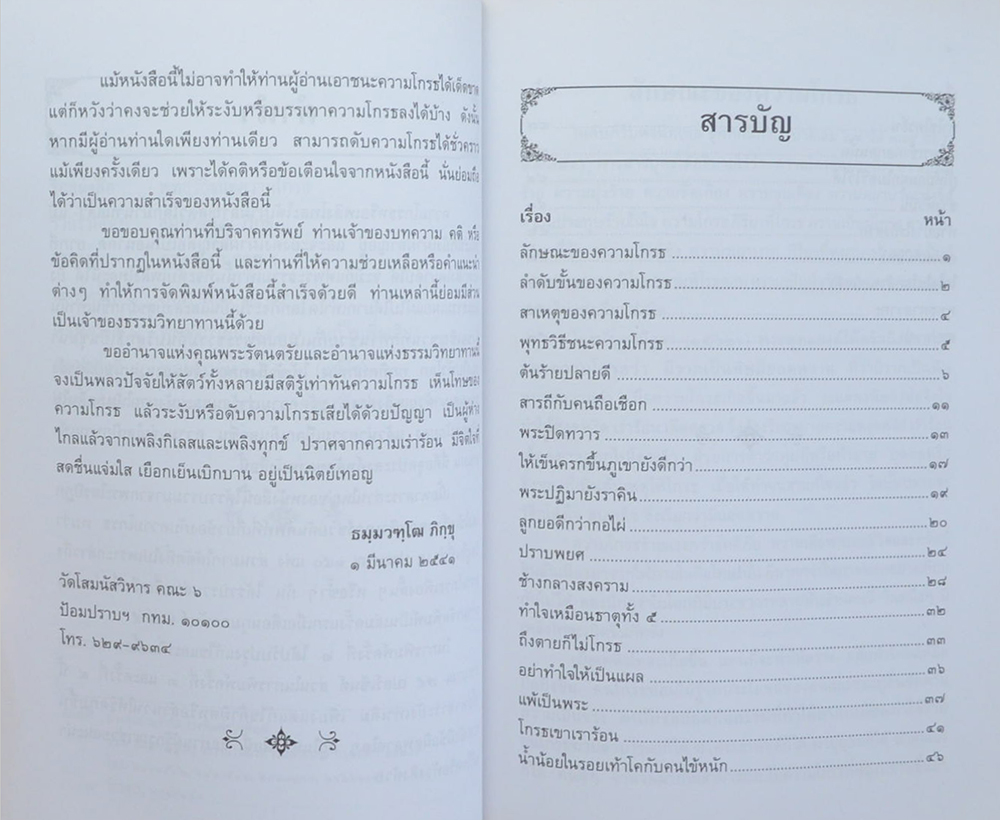 แม้หนังสือนี้ไม่อาจทำให้ท่านผู้อ่านเอาชนะความโกรธได้เด็ดขาด
แต่ก็หวังว่าคงจะช่วยให้ระงับหรือบรรเทาความโกรธลงได้บ้าง ดังนั้น
หากมีผู้อ่านท่านใดเพียงท่านเดียว สามารถดับความโกรธได้ชั่วคราว
แม้เพียงครั้งเดียว เพราะได้คติหรือข้อเตือนใจจากหนังสือนี้ นั่นย่อมถือ
ได้ว่าเป็นความสำเร็จของหนังสือนี้
ขอขอบคุณท่านที่บริจาคทรัพย์ ท่านเจ้าของบทความ คติ หรือ
ข้อคิดที่ปรากฏในหนังสือนี้ และท่านที่ให้ความช่วยเหลือหรือคำแนะนำ
ต่างๆ ทำให้การจัดพิมพ์หนังสือนี้สำเร็จด้วยดี ท่านเหล่านี้ย่อมมีส่วน
เป็นเจ้าของธรรมวิทยาทานนี้ด้วย
ขออำนาจแห่งคุณพระรัตนตรัยและอำนาจแห่งธรรมวิทยาทานนี้
จงเป็นพลวปัจจัยให้สัตว์ทั้งหลายมีสติรู้เท่าทันความโกรธ เห็นโทษของ
ความโกรธ แล้วระงับหรือดับความโกรธเสียได้ด้วยปัญญา เป็นผู้ห่าง
ไกลแล้วจากเพลิงกิเลสและเพลิงทุกข์ ปราศจากความเร่าร้อน มีจิตใจที่
สดชื่นแจ่มใส เยือกเย็นเบิกบาน อยู่เป็นนิตย์เทอญ
ธมฺมวฑฺโฒ ภิกฺขุ
๑ มีนาคม ๒๕๔๑
วัดโสมนัสวิหาร คณะ ๖
ป้อมปราบฯ กทม. ๑๐๑๐๐
โทร. ๖๒๙-๙๖๓๔
สารบัญ
เรื่อง หน้า
ลักษณะของความโกรธ ๑
ลำดับขั้นของความโกรธ ๒
สาเหตุของความโกรธ ๔
พุทธวิธีชนะความโกรธ ๕
ต้นร้ายปลายดี ๖
สารถีกับคนถือเชือก ๑๑
พระปิดทวาร ๑๓
ให้เข็นครกขึ้นภูเขายังดีกว่า ๑๗
พระปฏิมายังราคิน ๑๙
ลูกยอดีกว่ากอไผ่ ๒๐
ปราบพยศ ๒๔
ช้างกลางสงคราม ๒๘
ทำใจเหมือนธาตุทั้ง ๕ ๓๒
ถึงตายก็ไม่โกรธ ๓๓
อย่าทำใจให้เป็นแผล ๓๖
แพ้เป็นพระ ๓๗
โกรธเขาเราร้อน ๔๑
น้ำน้อยในรอยเท้าโคกับคนไข้หนัก ๔๖